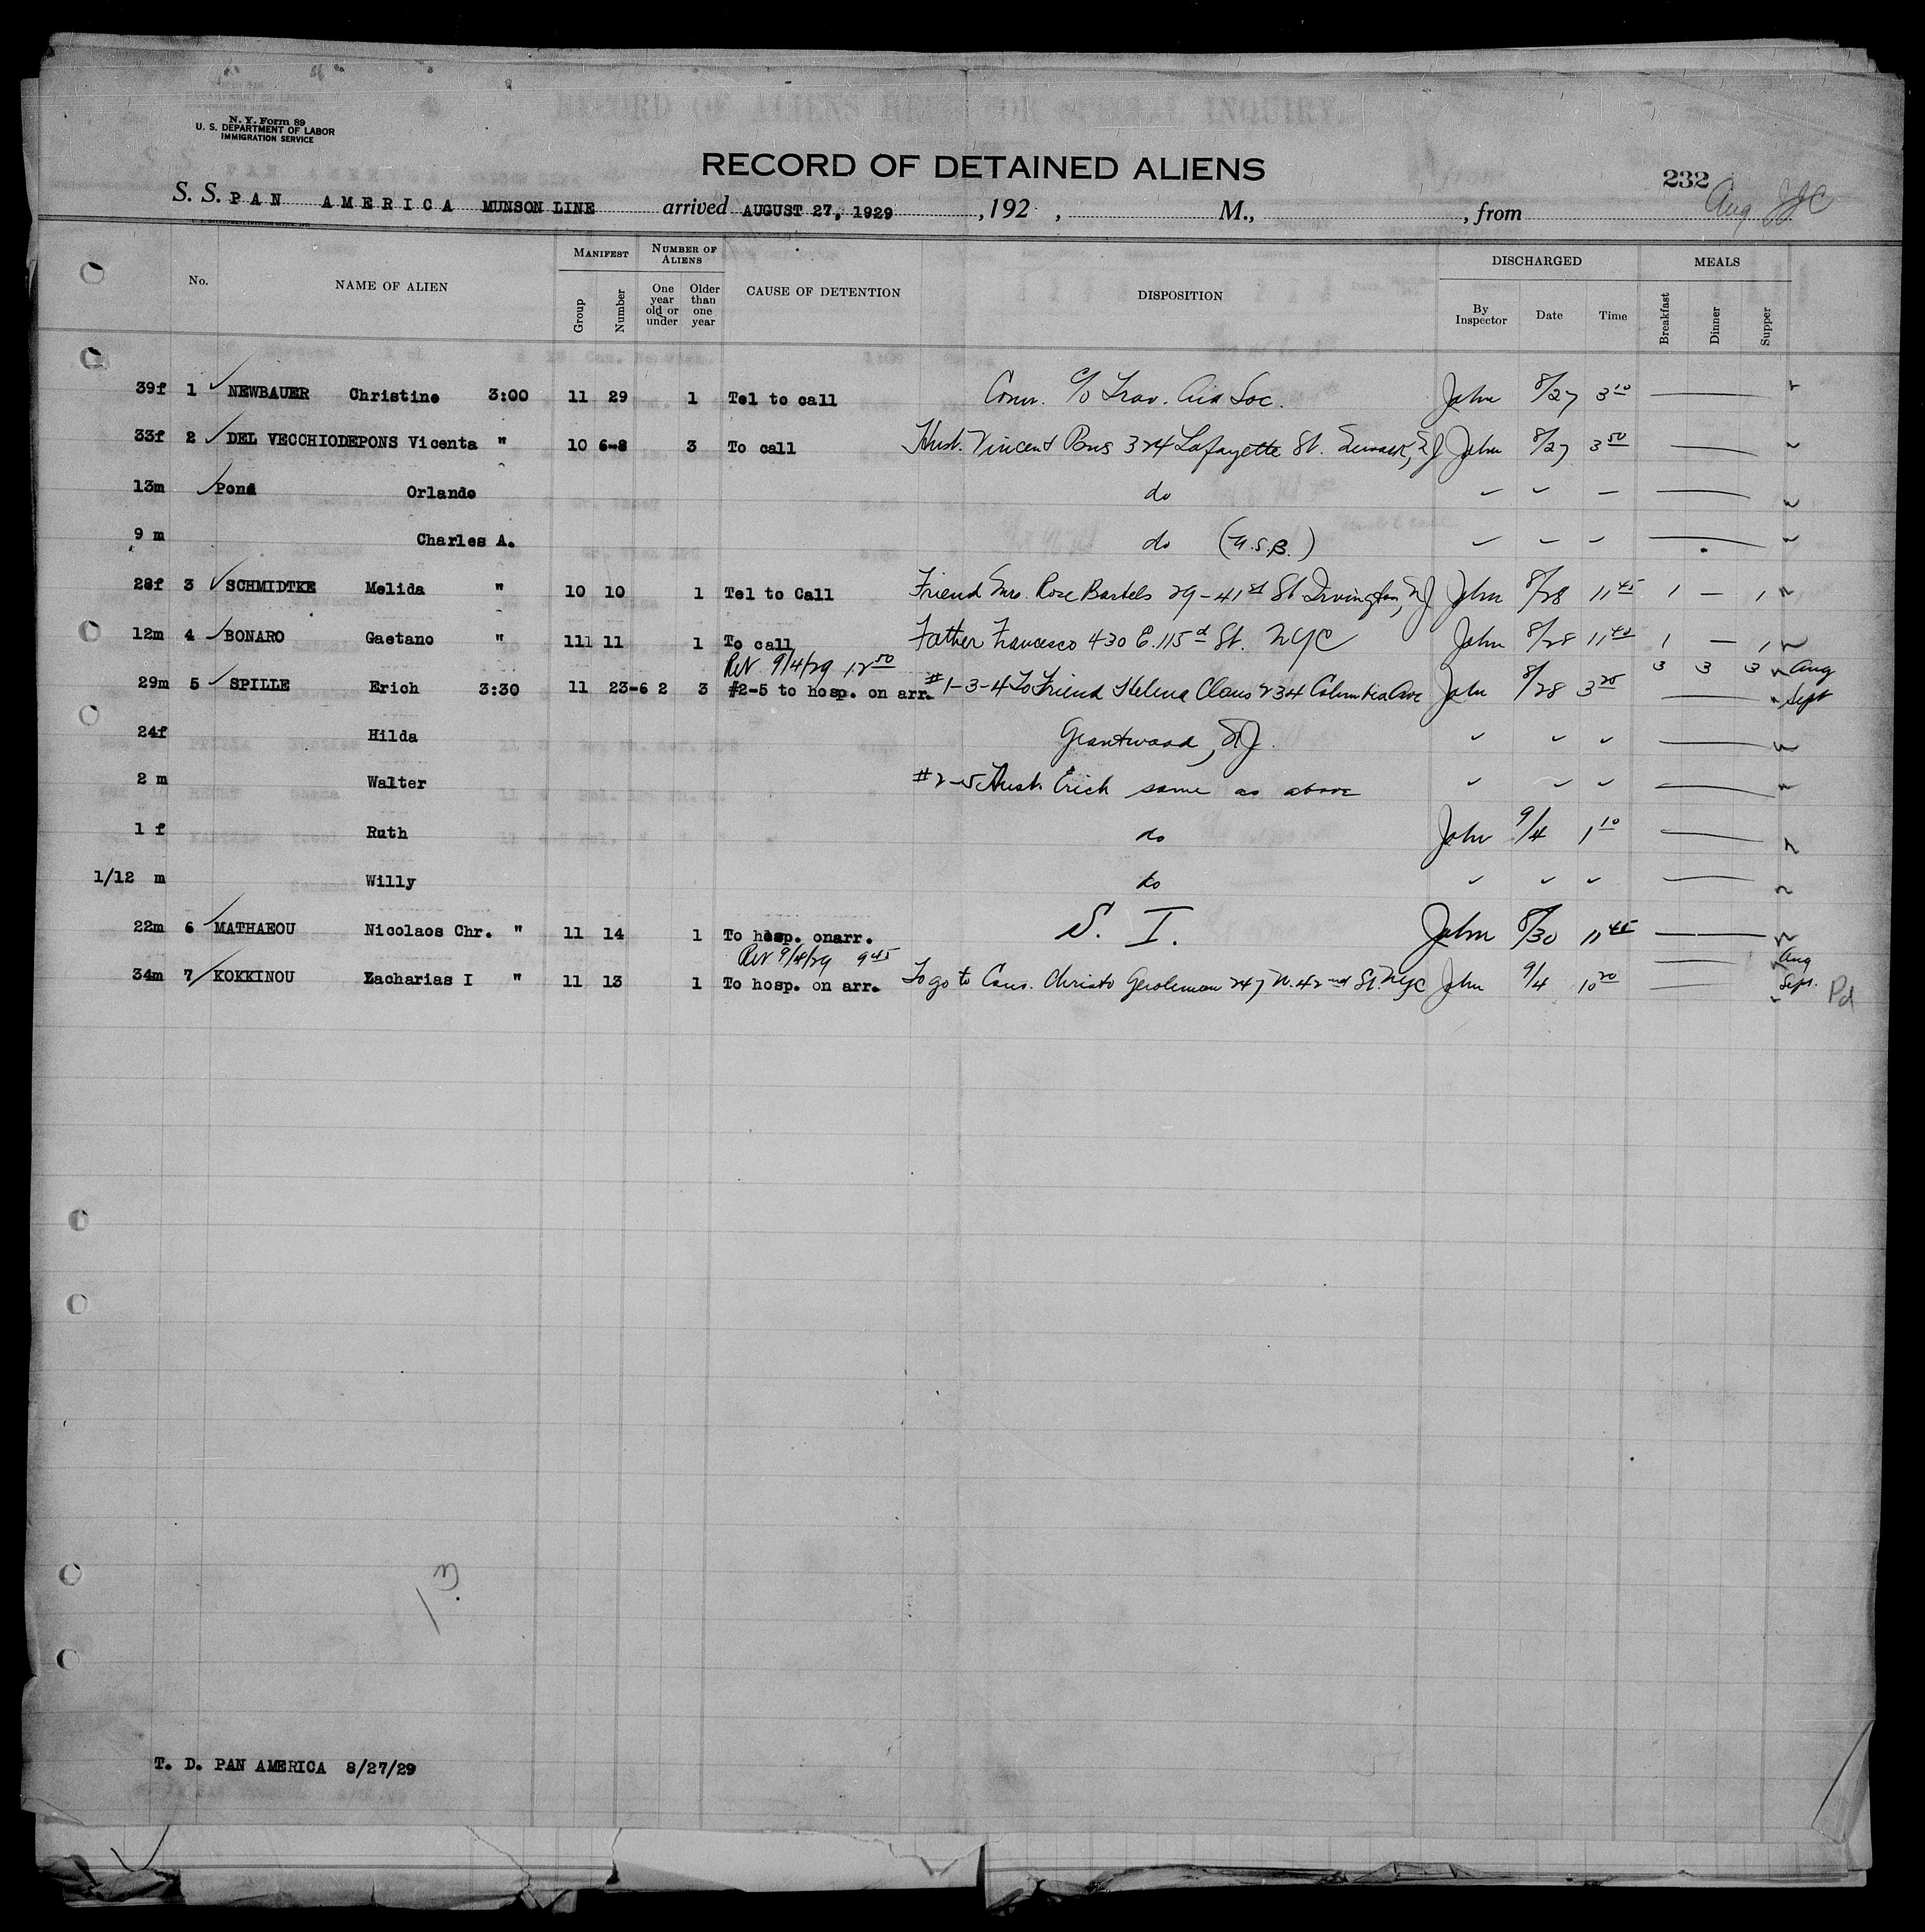 N. Y. Form 89
U. S. DEPARTMENT OF LABOR
IMMIGRATION SERVICE
RECORD OF DETAINED ALIENS
232
S. S. PAN AMERICA MUNSON LINE arrived AUGUST 27, 1929, 192 , M., , from Aug
No. NAME OF ALIEN MANIFEST Group Number NUMBER OF ALIENS One year old or under Older than one year CAUSE OF DETENTION DISPOSITION DISCHARGED By Inspector Date Time MEALS Breakfast Dinner Supper
39f 1 NEWBAUER Christine 3:00 11 29 1 Tel to call Conv. c/o Trav. Aid Soc. John 8/27 3 10
33f 2 DEL VECCHIODEPONS Vicenta " 10 6-8 3 To call Hust. Vincent Pons 324 Lafayette St. Newark, NJ John 8/27 3 50
13m Pons Orlando do
9 m Charles A. do (U.S.B.)
28f 3 SCHMIDTKE Melida " 10 10 1 Tel to Call Friend Mrs. Rose Bartels 29-41st St Irvington, NJ John 8/28 11 45 1 — 1
12m 4 BONARO Gaetano " 111 11 1 To call Father Francesco 430 E. 115 St. NYC John 8/28 11 40 1 — 1
Ret 9/4/29 12 50 3 3 3 Aug
29m 5 SPILLE Erich 3:30 11 23-6 2 3 #2-5 to hosp. on arr. #1-3-4 To Friend Helena Claus 234 Columbia Ave John 8/28 3 25 Sept
24f Hilda Grantwood, NJ.
2 m Walter #2-5 Hust. Erich same as above
1 f Ruth do John 9/4 1 10
1/12 m Willy do
22m 6 MATHAEOU Nicolaos Chr. " 11 14 1 To hosp. onarr. S. I. John 8/30 11 45
Ret 9/4/29 9 45 Aug
34m 7 KOKKINOU Zacharias I " 11 13 1 To hosp. on arr. To go to Cous. Christo 247 W. 42nd St. NYC John 9/4 10 20 Sept. Pd
T. D. PAN AMERICA 8/27/29